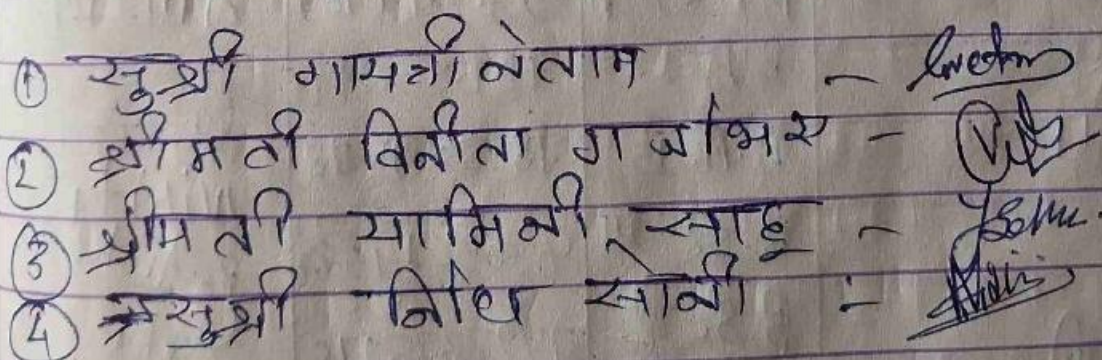 ① सुश्री गायत्री नेताम -
② श्रीमती विनीता गजभिए -
③ श्रीमती यामिनी साहू -
④ सुश्री निधि सोनी :-